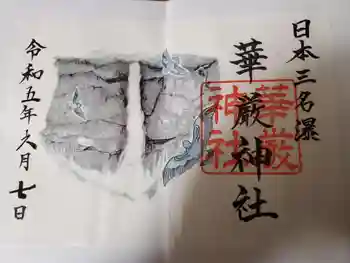 日本三名瀑
華厳神社
華厳神社
令和五年六月七日